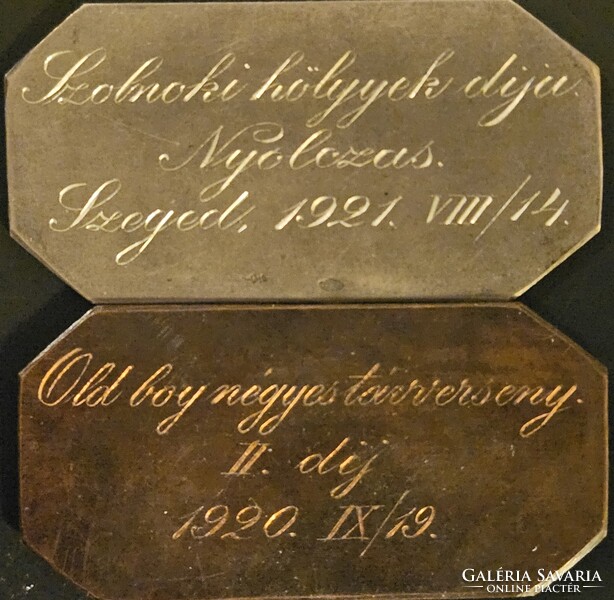 Szolnoki hölgyek díja.
Nyolczas.
Szeged, 1921. VIII/14.
Old boy négyes távverseny.
II. díj
1920. IX/19.
GALÉRIA SAVARIA
ONLINE PIACTÉR